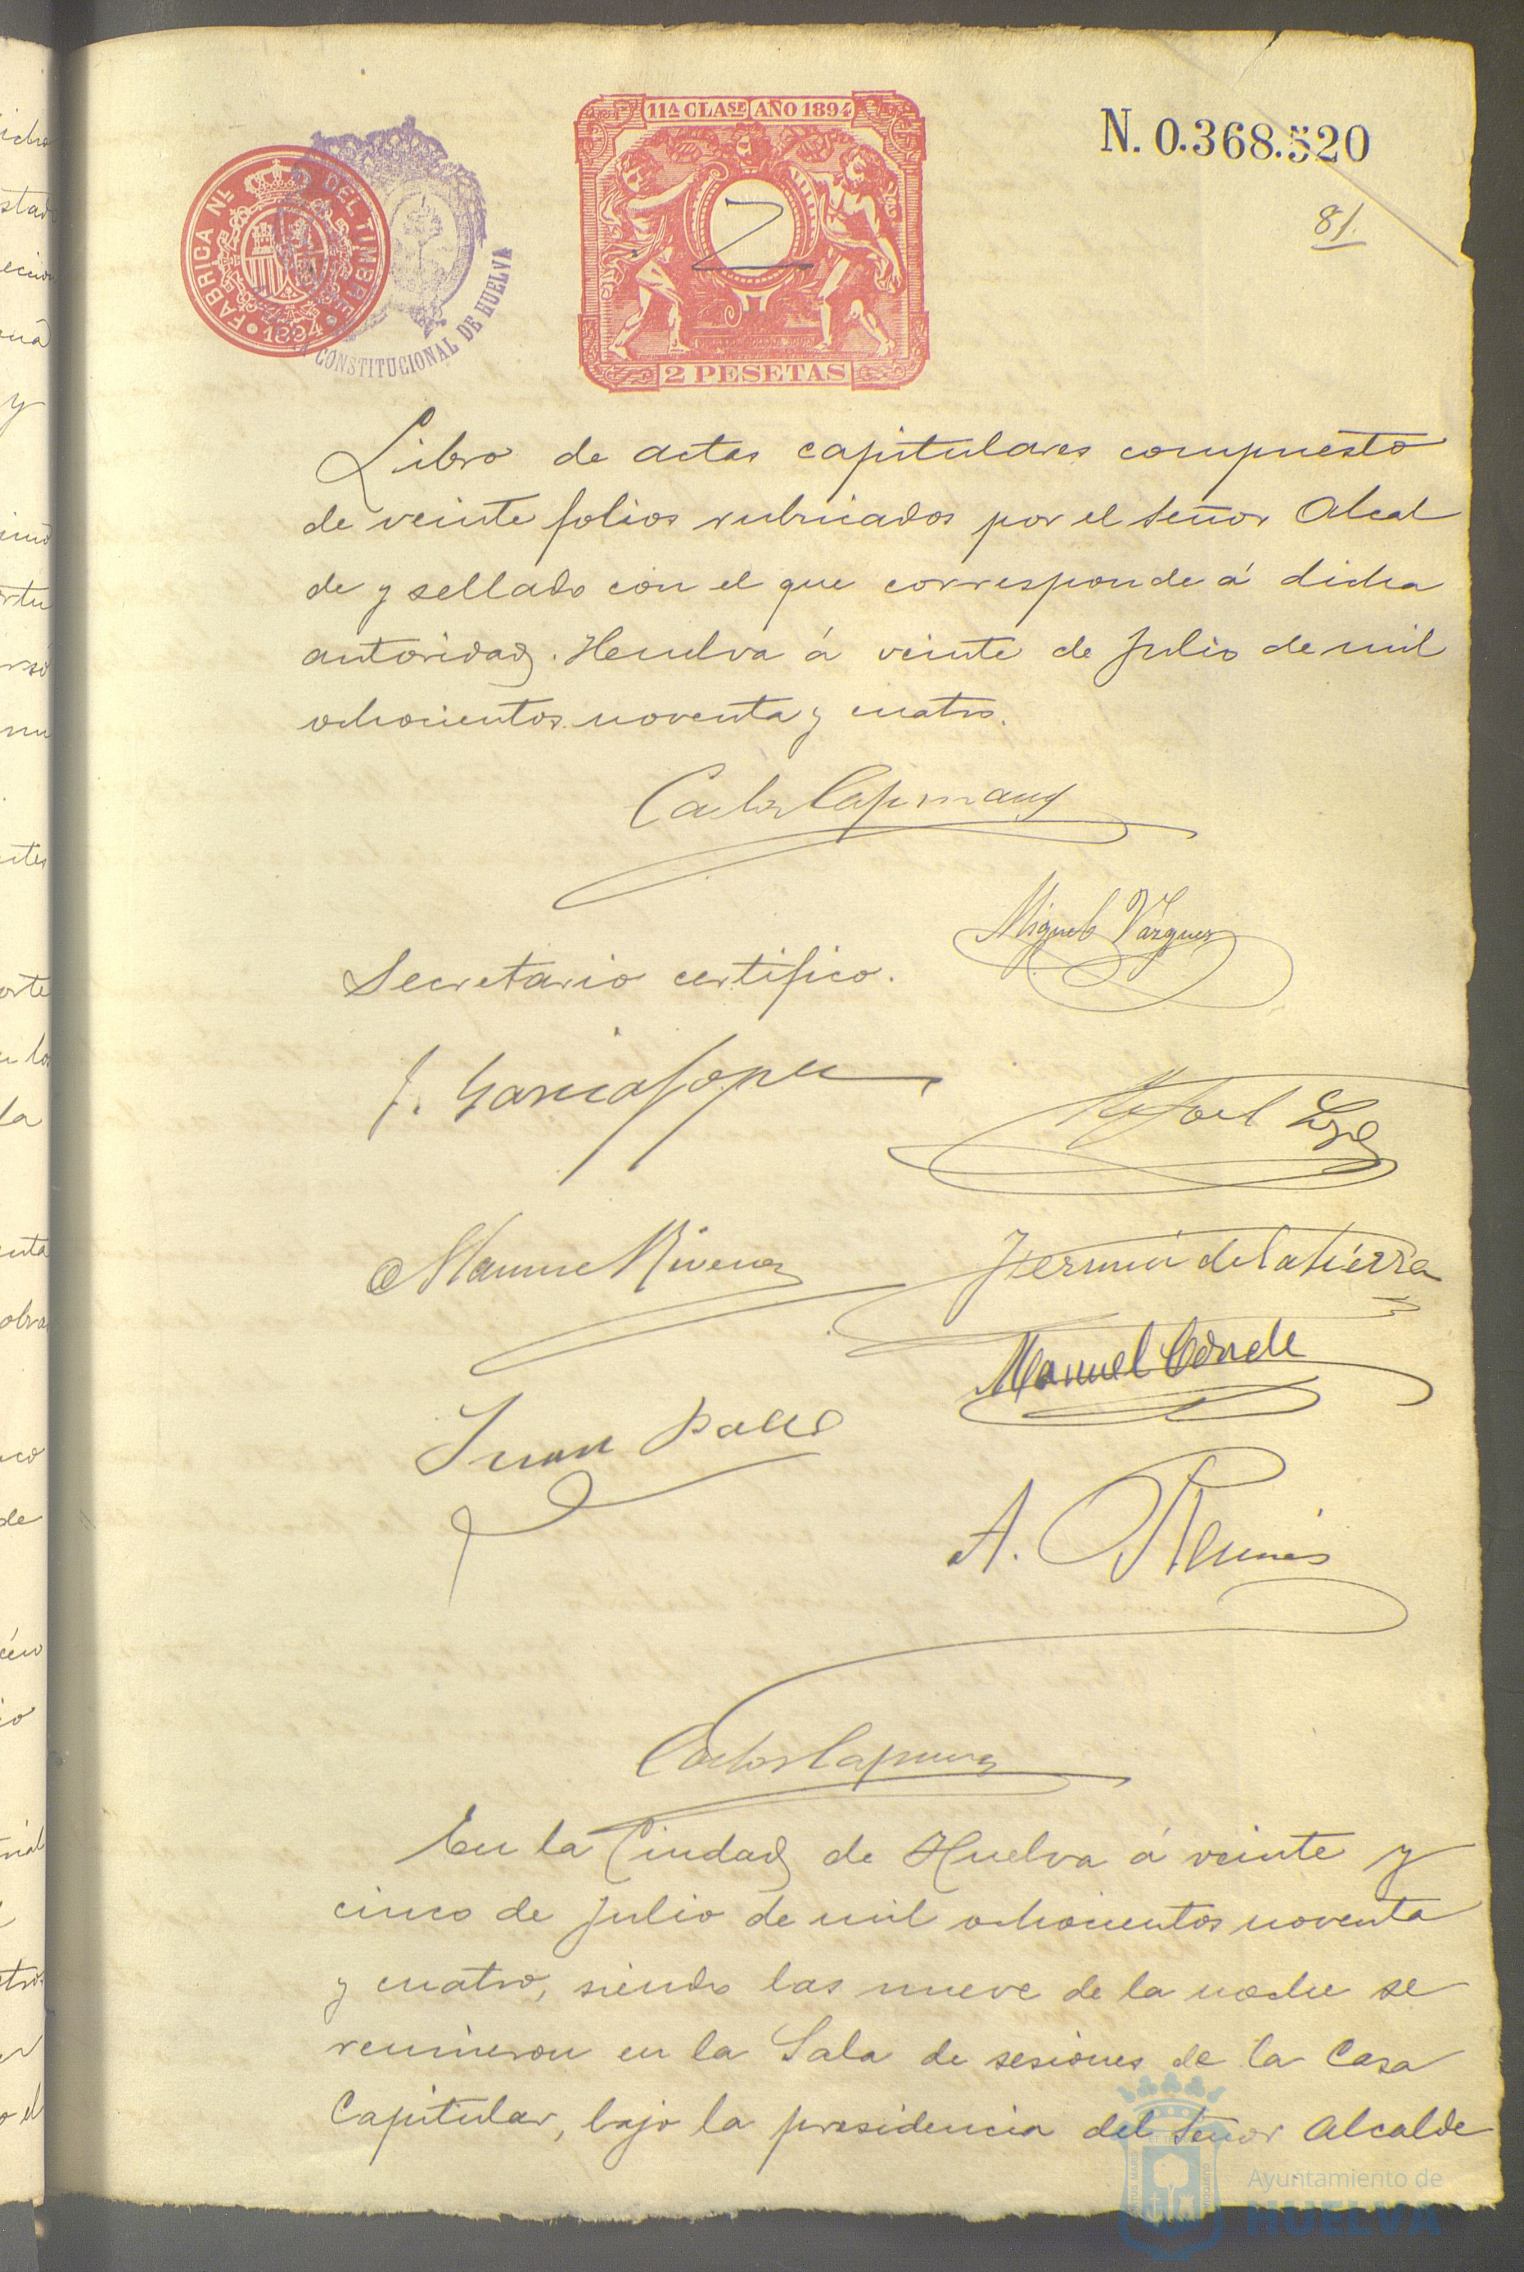 11ª CLASE AÑO 1894
N. 0.368.520
81.
FABRICA NL. DEL TIMBRE
1894
CONSTITUCIONAL DE HUELVA
2
2 PESETAS
Libro de actas capitulares compuesto
de veinte folios rubricados por el Señor Alcal
de y sellado con el que corresponde á dicha
autoridad. Huelva á veinte de Julio de mil
ochocientos noventa y cuatro.
Carlos Capmany
Miguel Vázquez
Secretario certifico.
J. Garcia Lopez
Rafael
Manuel
Fermin de la Sierra
Manuel Conde
Juan
A.
Carlos Capmany
En la Ciudad de Huelva á veinte y
cinco de Julio de mil ochocientos noventa
y cuatro, siendo las nueve de la noche se
reunieron en la Sala de sesiones de la Casa
Capitular, bajo la presidencia del Señor Alcalde
Ayuntamiento de
HUELVA